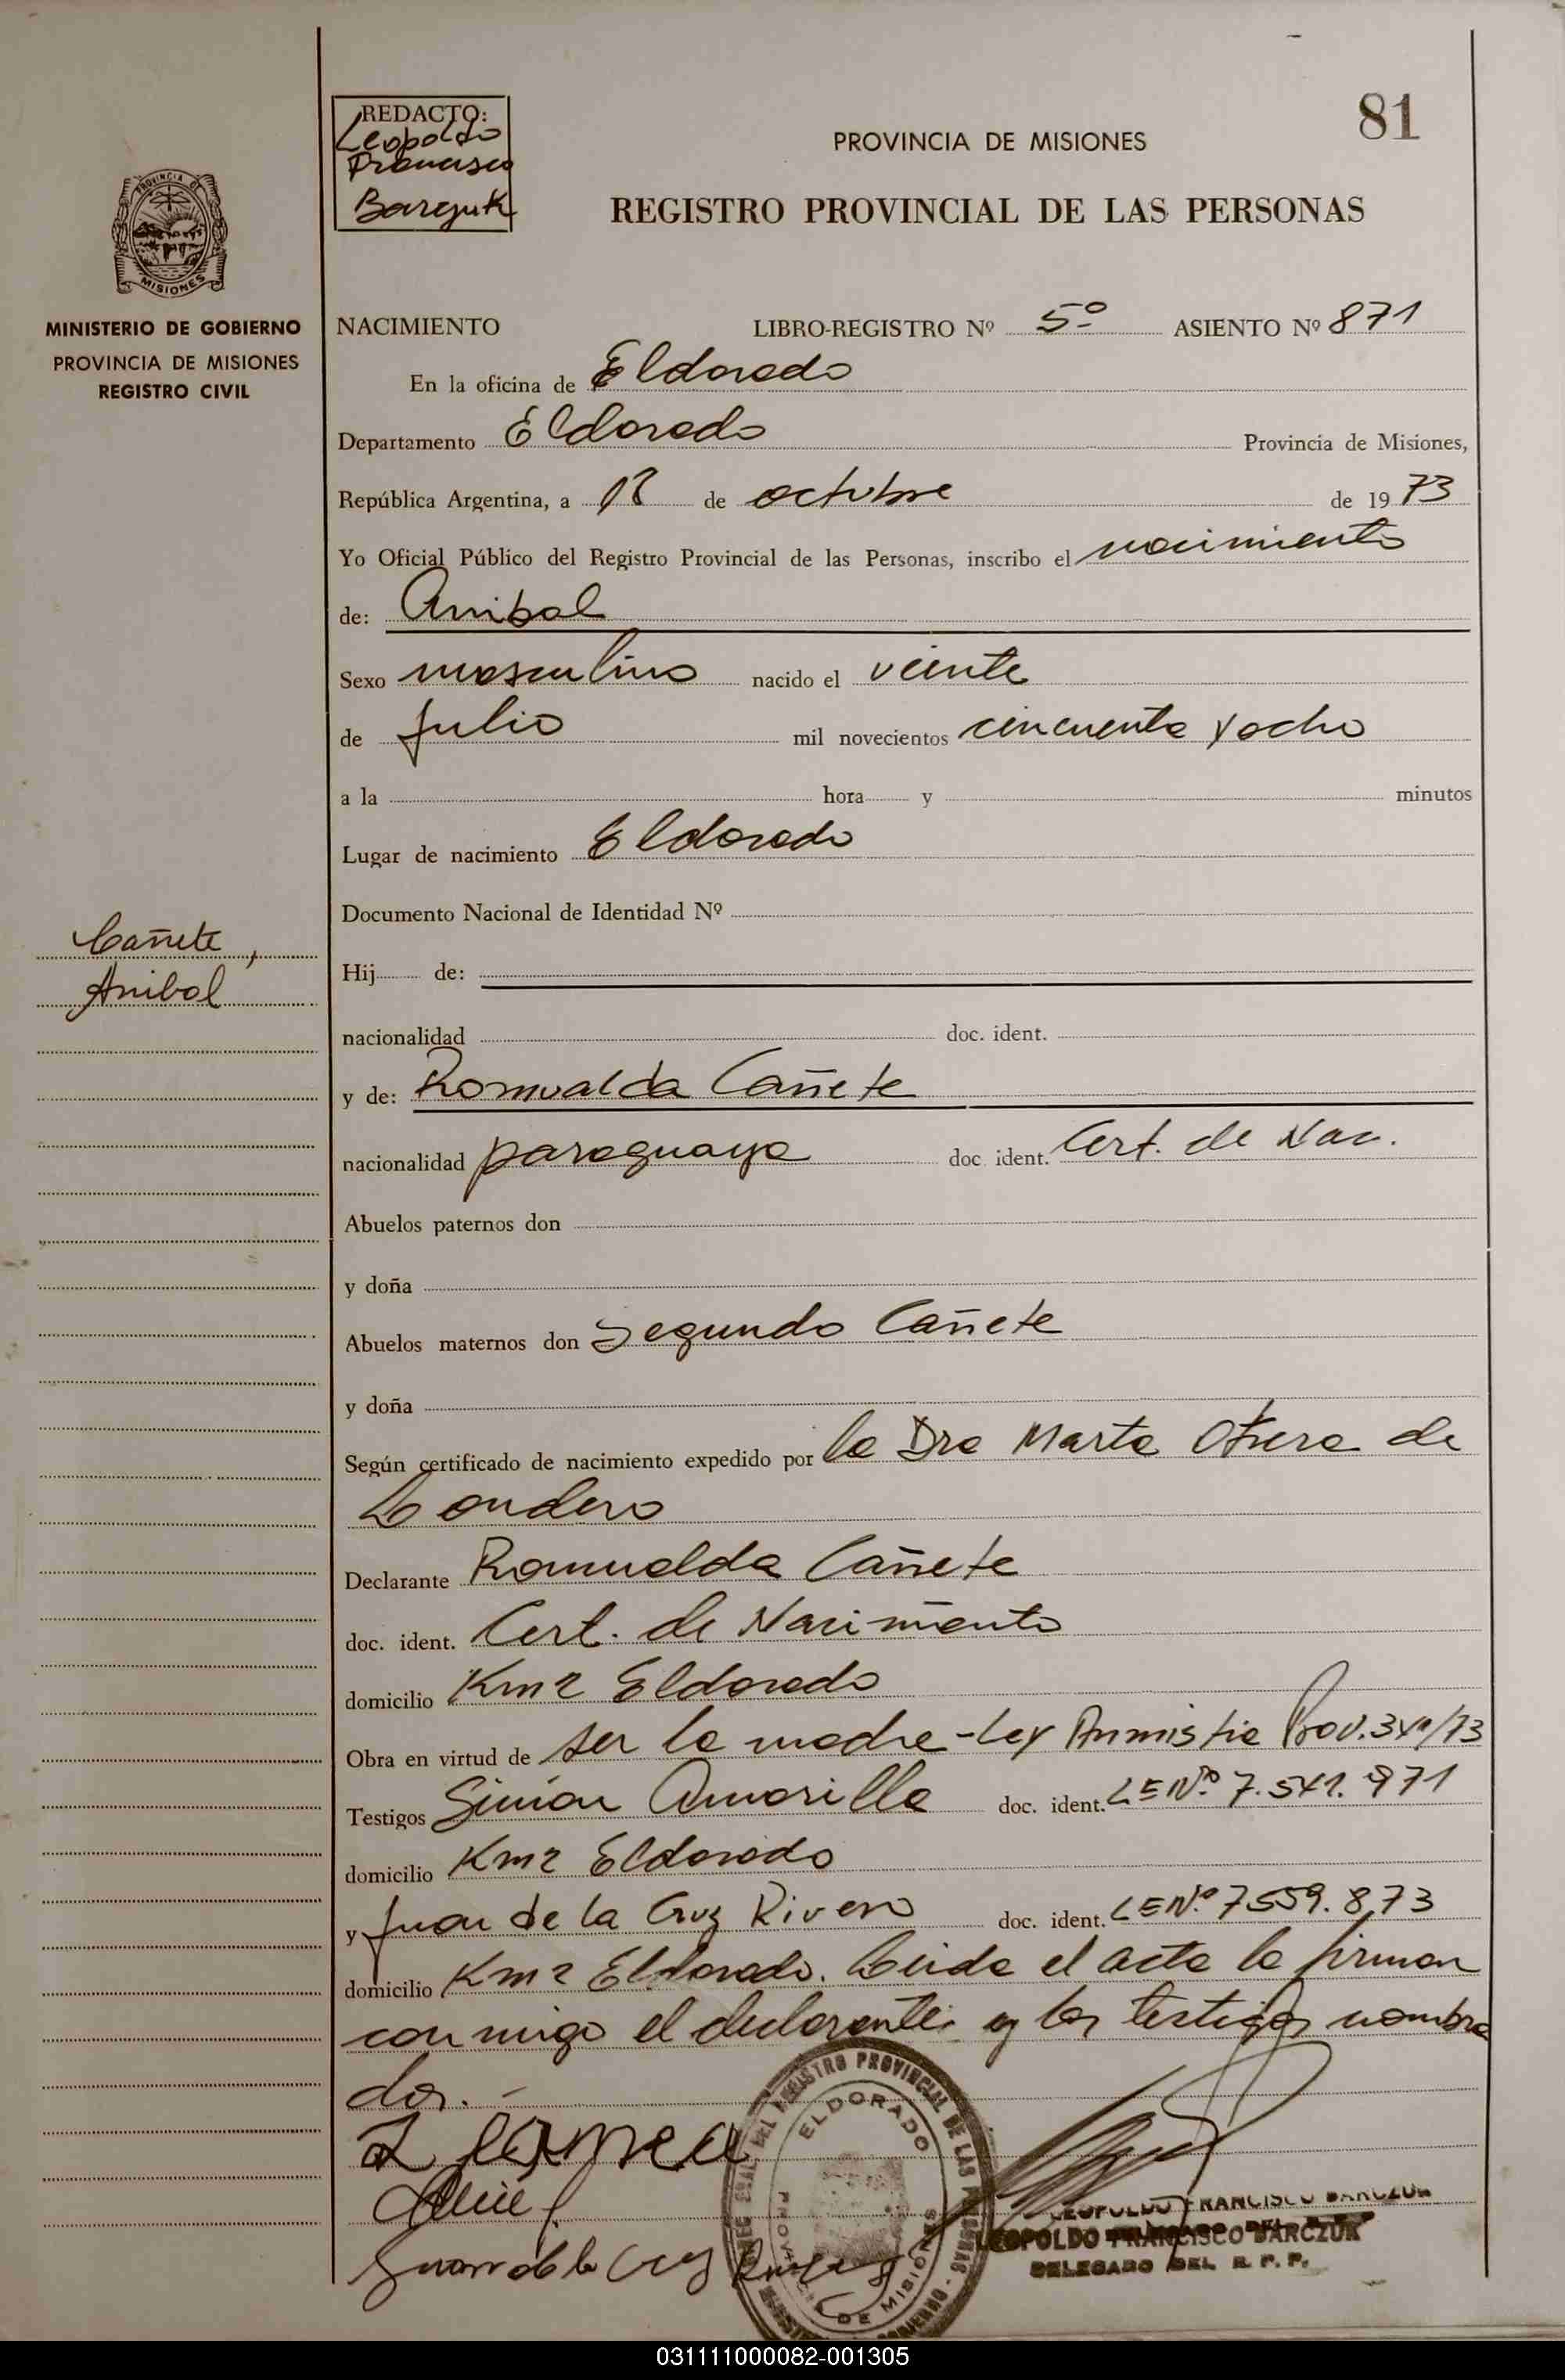 81
REDACTO:
Leopoldo
Francisco
Barczuk
PROVINCIA DE MISIONES
REGISTRO PROVINCIAL DE LAS PERSONAS
PROVINCIA DE
MISIONES
MINISTERIO DE GOBIERNO
PROVINCIA DE MISIONES
REGISTRO CIVIL
NACIMIENTO LIBRO-REGISTRO Nº 5º ASIENTO Nº 871
En la oficina de Eldorado
Departamento Eldorado Provincia de Misiones,
República Argentina, a de octubre de 1973
Yo Oficial Público del Registro Provincial de las Personas, inscribo el nacimiento
de: Anibal
Sexo masculino nacido el veinte
de Julio mil novecientos cincuenta y ocho
a la hora y minutos
Lugar de nacimiento Eldorado
Documento Nacional de Identidad Nº
Cañete,
Anibal
Hij de:
nacionalidad doc. ident.
y de: Romualda Cañete
nacionalidad paraguaya doc. ident. Cert. de Nac.
Abuelos paternos don
y doña
Abuelos maternos don Segundo Cañete
y doña
Según certificado de nacimiento expedido por la Dra Marta de
Londero
Declarante Romualda Cañete
doc. ident. Cert. de Nacimiento
domicilio Km 2 Eldorado
Obra en virtud de ser la madre - Ley Anmistia Prov.
Testigos Simón Amarilla doc. ident. LE Nº 7.541.971
domicilio Km 2 Eldorado
y Juan de la Cruz Rivero doc. ident. LE Nº 7559.873
domicilio Km 2 Eldorado. Leida el acta la firman
con migo el declarante y los testigos nombra
dos. -
Juan de la Cruz
REGISTRO PROVINCIAL DE LAS PERSONAS
ELDORADO
DE MISIONES
LEOPOLDO FRANCISCO BARCZUK
LEOPOLDO FRANCISCO BARCZUK
DELEGADO DEL R. P. P.
031111000082-001305